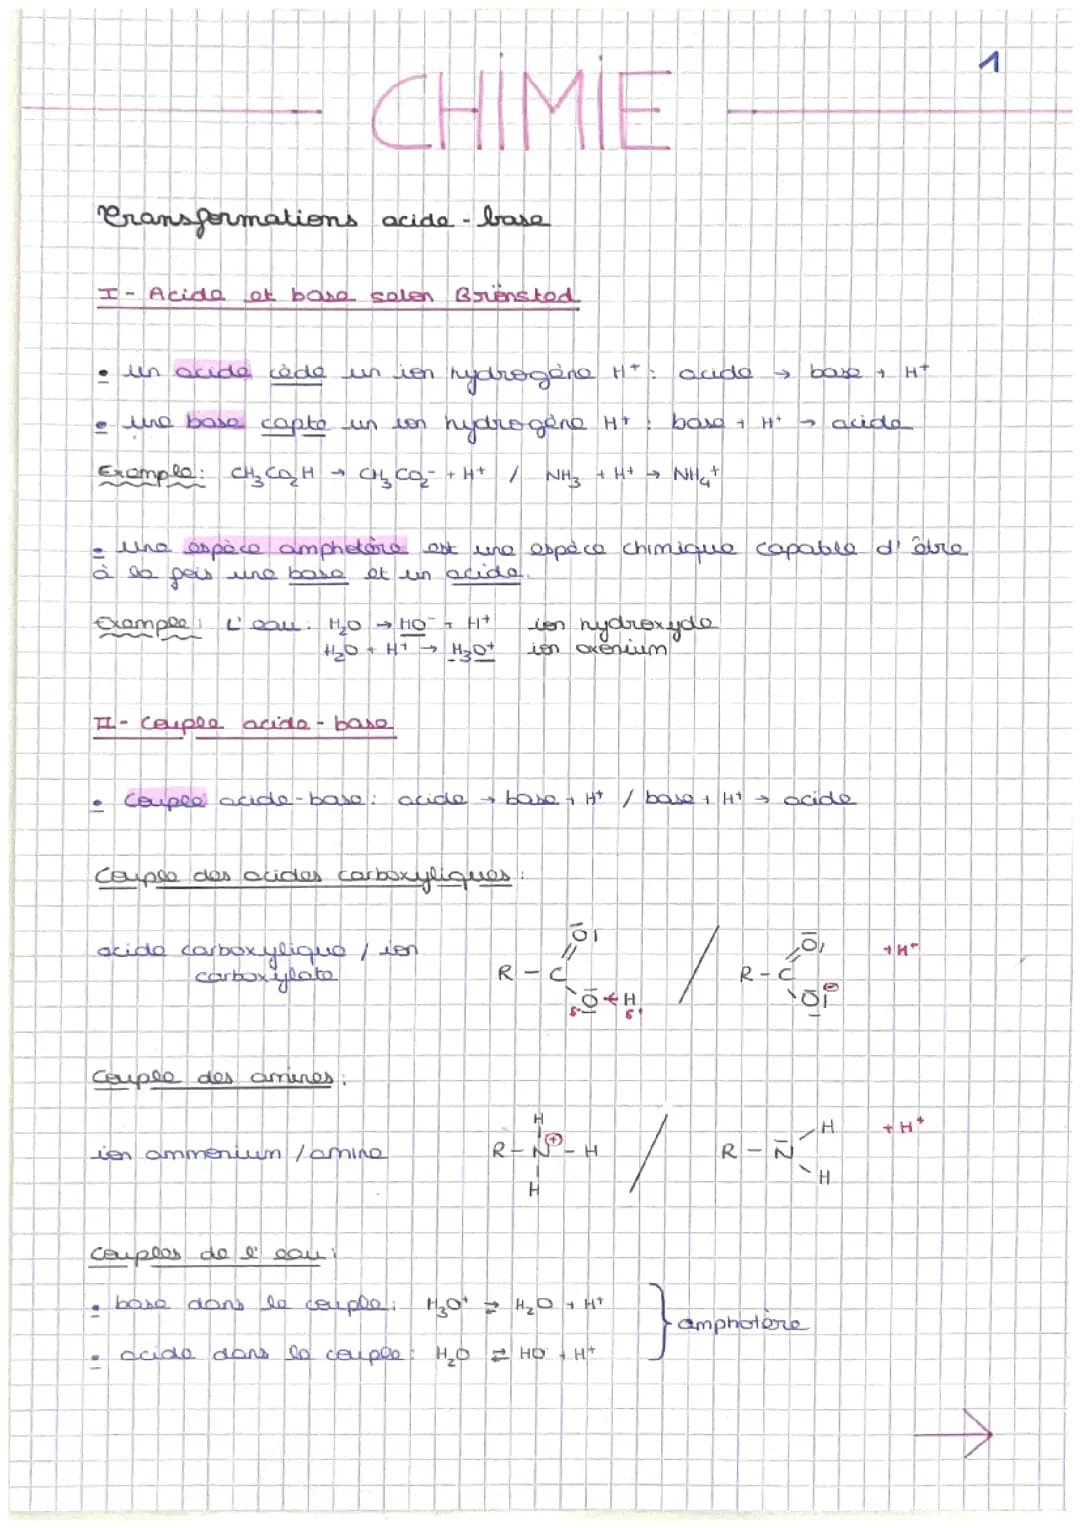 1
CHIMIE
Transformations acide - base
I - Acide et base selon Brönsted
• un acide cède un ion hydrogène H⁺ : acide → base + H⁺
• une base capte un ion hydrogène H⁺ : base + H⁺ → acide
Exemple : CH₃CO₂H → CH₃CO₂⁻ + H⁺ / NH₃ + H⁺ → NH₄⁺
• une espèce amphotère est une espèce chimique capable d'être
à la fois une base et un acide.
Exemple : L'eau : H₂O → HO⁻ + H⁺ ion hydroxyde
H₂O + H⁺ → H₃O⁺ ion oxonium
II - Couple acide - base
• Couple acide-base : acide → base + H⁺ / base + H⁺ → acide
Couple des acides carboxyliques :
acide carboxylique / ion
carboxylate
R - C O O H / R - C O O ⊖ + H⁺
δ⁻ δ⁺
Couple des amines :
ion ammonium / amine
H
R - N⊕ - H / R - N H + H⁺
H H
Couples de l'eau :
• base dans le couple : H₃O⁺ ⇄ H₂O + H⁺
amphotère
• acide dans le couple : H₂O ⇄ HO⁻ + H⁺